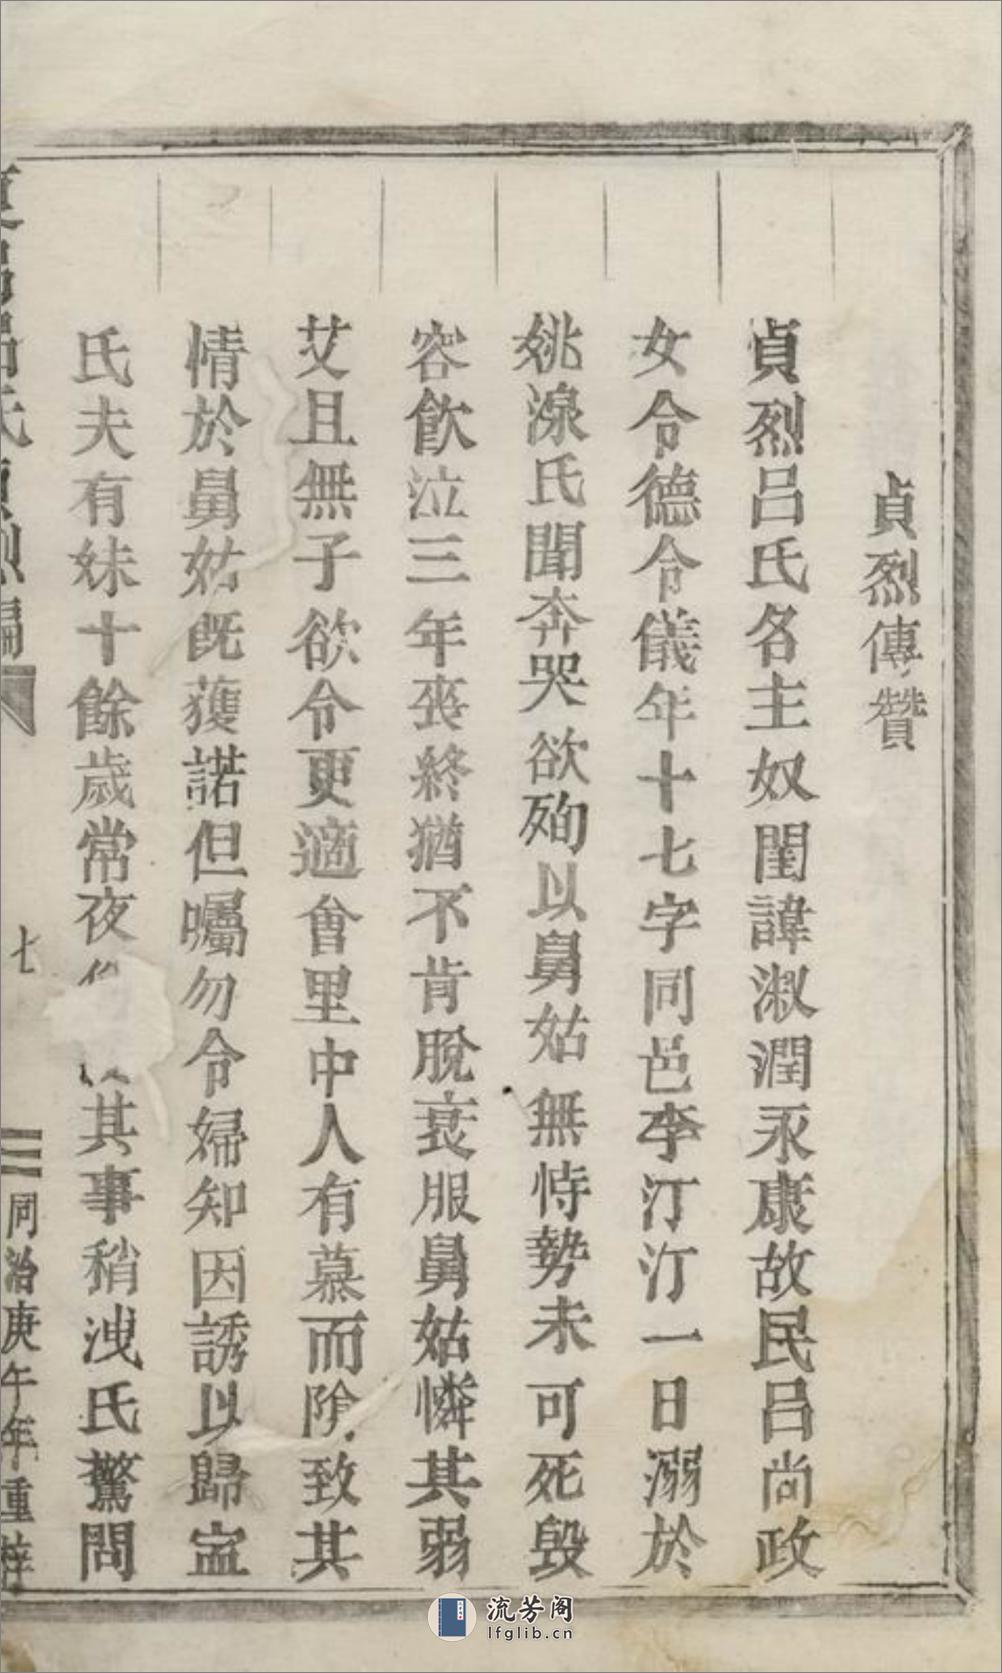 貞烈傳贊
貞烈呂氏名主奴閨諱淑潤永康故民呂尚政
女令德令儀年十七字同邑李汀汀一日溺於
姚湶氏聞奔哭欲殉以舅姑無恃勢未可死毀
容飲泣三年喪終猶不肯脫衰服舅姑憐其弱
艾且無子欲令更適會里中人有慕而陰致其
情於舅姑既獲諾但囑勿令婦知因誘以歸寍
氏夫有妹十餘歲常夜其事稍洩氏驚問
呂氏貞烈編
七
同治庚午年重梓
流芳阁
lfglib.cn